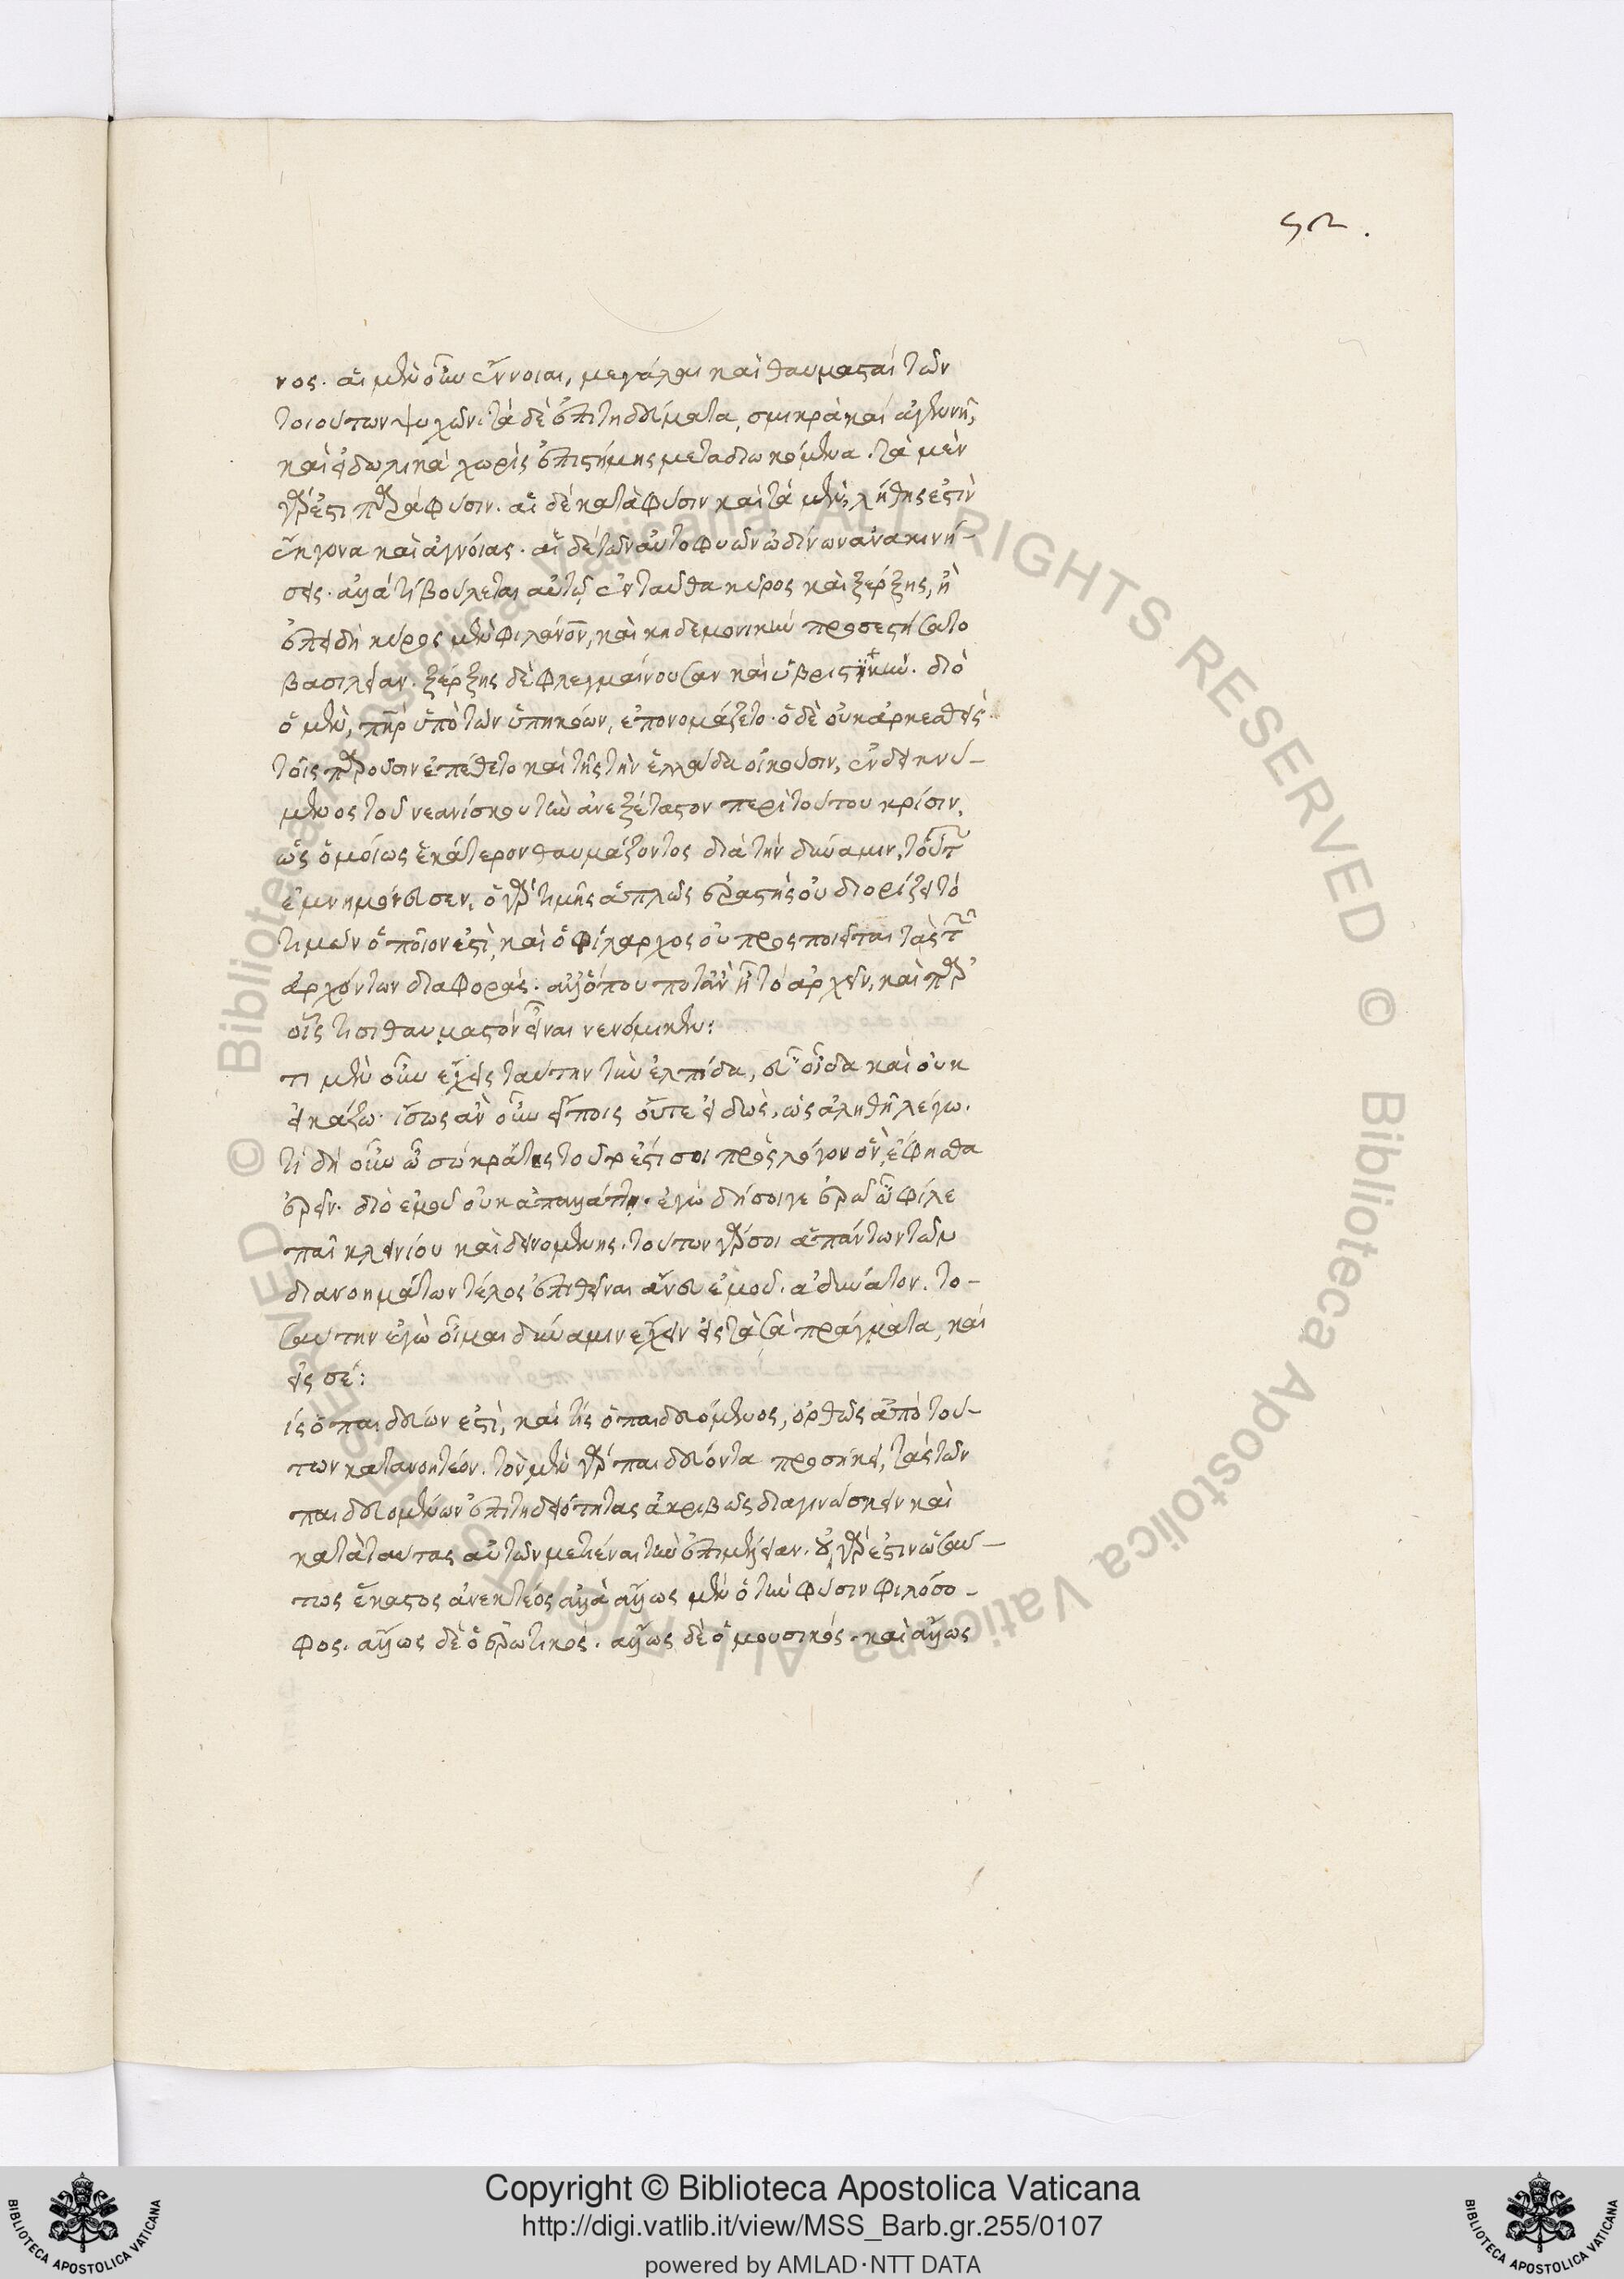 52.
νος. αἱ μὲν οὖν ἔννοιαι, μεγάλαι καὶ θαυμασταὶ τῶν
τοιούτων ψυχῶν· τὰ δὲ ἐπιτηδεύματα, σμικρὰ καὶ ἀγεννῆ,
καὶ εἰδωλικὰ χωρὶς ἐπιστήμης μεταδιωκόμενα. τὰ μὲν
γάρ ἐστι παρὰ φύσιν. αἱ δὲ κατὰ φύσιν καὶ τὰ μὲν, λήθης ἐστὶν
ἔκγονα καὶ ἀγνοίας. αἱ δὲ τῶν αὐτοφυῶν ὠδίνων ἀνακινή-
σεις. ἀλλὰ τί βούλεται αὐτῷ ἐνταῦθα κῦρος καὶ ξέρξης, ἢ
ἐπειδὴ κύρος μὲν φιλάνον, καὶ κηδεμονικὴν προσεστήσατο
βασιλείαν. ξέρξης δὲ φλεγμαίνουσαν καὶ ὑβριστικήν. διὸ
ὁ μὲν, πὴρ ὑπὸ τῶν ὑπηκόων, ἐπονομάζετο· ὁ δὲ οὐκ ἀρκεσθεὶς
τοῖς παροῦσιν ἐπέθετο καὶ τῆς τὴν ἑλλάδα οἰκοῦσιν, ἐνδεικνύ-
μενος τοῦ νεανίσκου τὴν ἀνεξέταστον περὶ τούτου κρίσιν,
ὡς ὁμοίως ἑκάτερον θαυμάζοντος διὰ τὴν δύναμιν, τούτ
ἐμνημόνευσεν. ὁ γὰρ τιμῆς ἁπλῶς ἐραστὴς οὐ διορίζει τὸ
τιμᾶν ὁποῖον ἐστὶ, καὶ ὁ φίλαρχος οὐ προςποιεῖται τὰς τ
ἀρχόντων διαφοράς. ἀλλ' ὅπου ποτ' ἂν ᾖ τὸ ἄρχειν, καὶ παρ'
οἷς τισι θαυμαστὸν εἶναι νενόμικεν:
τι μὲν οὖν ἔχεις ταύτην τὴν ἐλπίδα, εὖ οἶδα καὶ οὐκ
εἰκάζω· ἴσως ἂν οὖν εἴποις οὔτε εἰδὼς, ὡς ἀληθῆ λέγω.
τί δὴ οὖν ὦ σώκρατες τοῦτ' ἐστί σοι πρὸς λόγον ὃν, ἔφησθα
ἐρεῖν. διὸ ἐμοῦ οὐκ ἀπαλλάττῃ. ἐγὼ δή σοί γε ἐρῶ ὦ φίλε
παῖ κλεινίου καὶ δεινομένης. τούτων γάρ σοι ἁπάντων τῶν
διανοημάτων τέλος ἐπιθεῖναι ἄνευ ἐμοῦ. ἀδύνατον. το-
σαύτην ἐγὼ οἶμαι δύναμιν ἔχειν εἰς τὰ σὰ πράγματα, καὶ
εἰς σέ:
ίς ὁ παιδεύων ἐστὶ, καὶ τίς ὁ παιδευόμενος, ὀρθῶς ἀπὸ τού-
των κατανοητέον. τὸν μὲν γὰρ παιδεύοντα προσήκει, τὰς τῶν
παιδευομένων ἐπιτηδειότητας ἀκριβῶς διαγινώσκειν καὶ
κατὰ ταύτας αὐτῶν μετιέναι τὴν ἐπιμέλειαν. οὐ γάρ ἐστιν ὡσαύ-
τως ἕκαστος ἀνεκτέος ἀλλὰ ἄλλως μὲν ὁ τὴν φύσιν φιλόσο-
φος. ἄλλως δὲ ὁ ἐρωτικός. ἄλλως δὲ ὁ μουσικός. καὶ ἄλλως
© Biblioteca Apostolica Vaticana ALL RIGHTS RESERVED
Copyright © Biblioteca Apostolica Vaticana
http://digi.vatlib.it/view/MSS_Barb.gr.255/0107
powered by AMLAD·NTT DATA
BIBLIOTECA APOSTOLICA VATICANA
BIBLIOTECA APOSTOLICA VATICANA